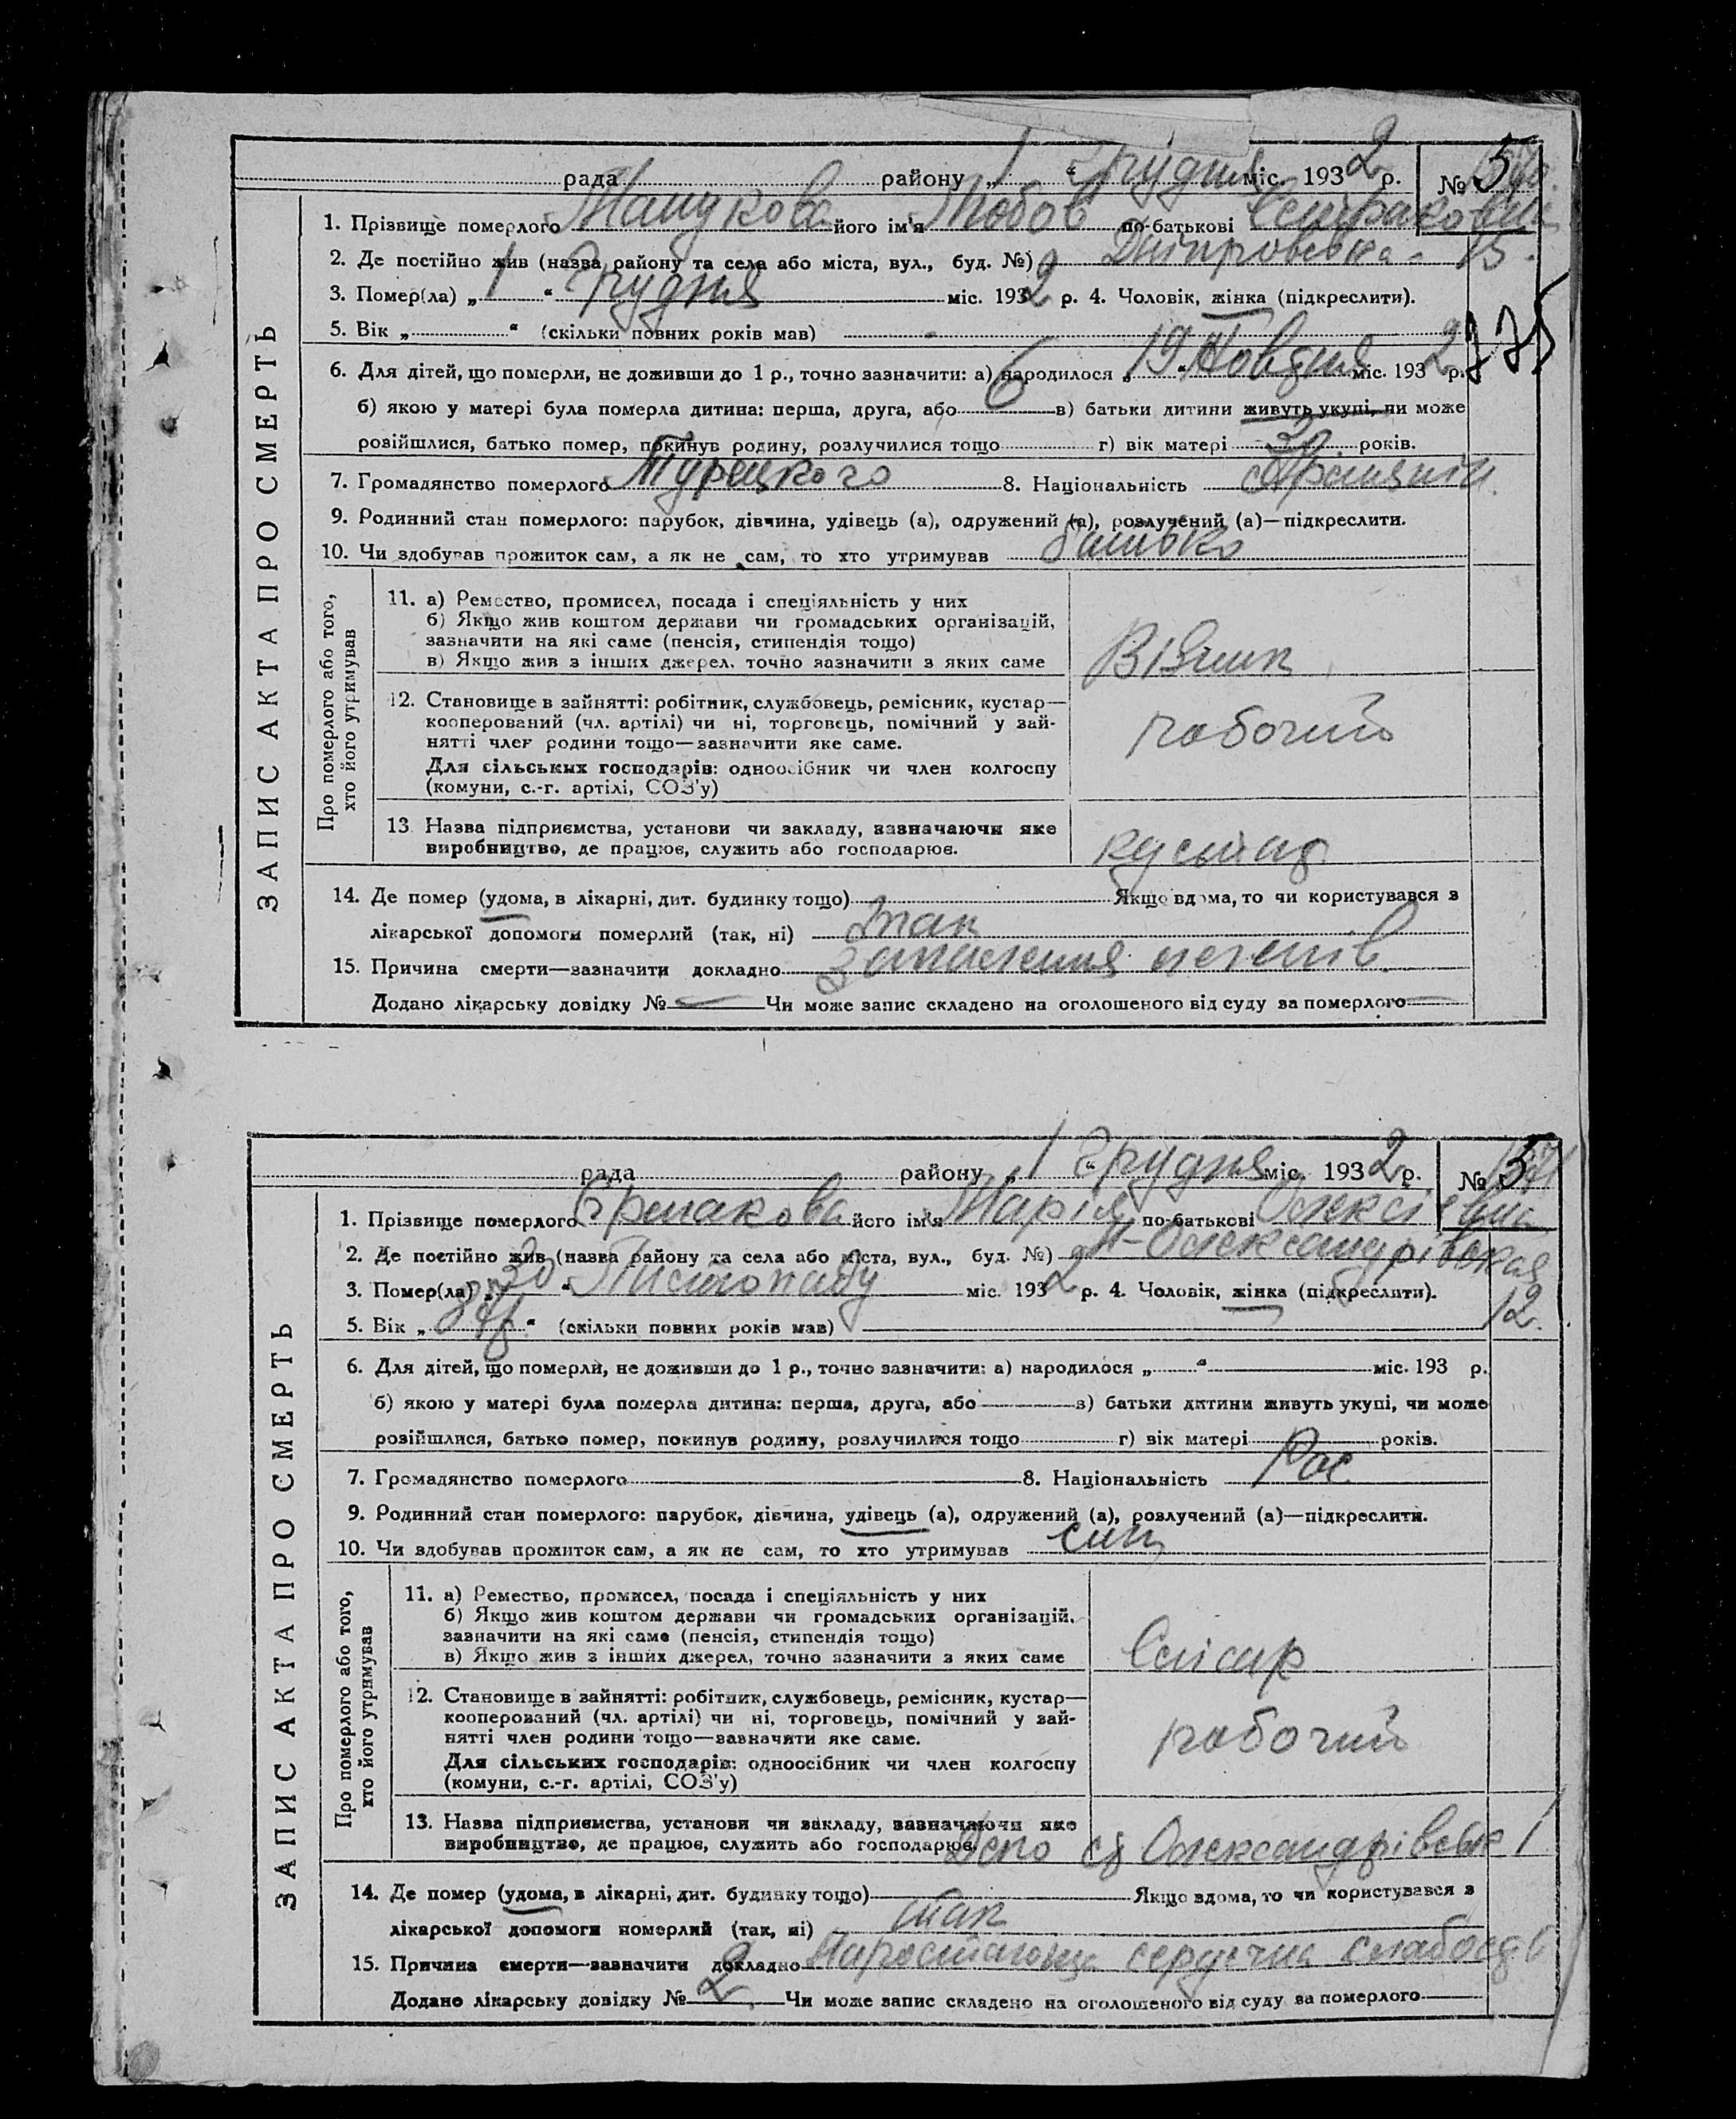 рада району „1“ Грудня міс. 1932 р. № 5
1. Прізвище померлого Манукова його ім'я Любов по-батькові
2. Де постійно жив (назва району та села або міста, вул., буд. №) Дніпровська - 15.
3. Помер(ла) „1“ Грудня міс. 1932 р. 4. Чоловік, жінка (підкреслити).
5. Вік „ “ (скільки повних років мав)
6. Для дітей, що померли, не доживши до 1 р., точно зазначити: а) народилося „19“ Жовтня міс. 1932 р.
б) якою у матері була померла дитина: перша, друга, або 6 в) батьки дитини живуть укупі, чи може
розійшлися, батько помер, покинув родину, розлучилися тощо г) вік матері років.
7. Громадянство померлого Турецкого 8. Національність
9. Родинний стан померлого: парубок, дівчина, удівець (а), одружений (а), розлучений (а)—підкреслити.
10. Чи здобував прожиток сам, а як не сам, то хто утримував батько
ЗАПИС АКТА ПРО СМЕРТЬ
Про померлого або того,
хто його утримував
11. а) Ремество, промисел, посада і спеціяльність у них
б) Якщо жив коштом держави чи громадських організацій,
зазначити на які саме (пенсія, стипендія тощо)
в) Якщо жив з інших джерел, точно зазначити з яких саме
Візник
12. Становище в зайнятті: робітник, службовець, ремісник, кустар—
кооперований (чл. артілі) чи ні, торговець, помічний у зай-
нятті член родини тощо—зазначити яке саме.
Для сільських господарів: одноосібник чи член колгоспу
(комуни, с.-г. артілі, СОЗ'у)
рабочий
13. Назва підприємства, установи чи закладу, зазначаючи яке
виробництво, де працює, служить або господарює.
14. Де помер (удома, в лікарні, дит. будинку тощо) Якщо вдома, то чи користувався з
лікарської допомоги померлий (так, ні) так
15. Причина смерти—зазначити докладно Запалення легенів
Додано лікарську довідку № — Чи може запис складено на оголошеного від суду за померлого —
рада району „1“ Грудня міс. 1932 р. № 5
1. Прізвище померлого Єрмакова його ім'я Марія по-батькові Олексієвна
2. Де постійно жив (назва району та села або міста, вул., буд. №) Н-Олександрівская
12.
3. Помер(ла) „30“ Листопаду міс. 1932 р. 4. Чоловік, жінка (підкреслити).
5. Вік „ “ (скільки повних років мав)
6. Для дітей, що померли, не доживши до 1 р., точно зазначити: а) народилося „ “ міс. 193 р.
б) якою у матері була померла дитина: перша, друга, або в) батьки дитини живуть укупі, чи може
розійшлися, батько помер, покинув родину, розлучилися тощо г) вік матері років.
7. Громадянство померлого 8. Національність Рос
9. Родинний стан померлого: парубок, дівчина, удівець (а), одружений (а), розлучений (а)—підкреслити.
10. Чи здобував прожиток сам, а як не сам, то хто утримував син
ЗАПИС АКТА ПРО СМЕРТЬ
Про померлого або того,
хто його утримував
11. а) Ремество, промисел, посада і спеціяльність у них
б) Якщо жив коштом держави чи громадських організацій,
зазначити на які саме (пенсія, стипендія тощо)
в) Якщо жив з інших джерел, точно зазначити з яких саме
Слісар
12. Становище в зайнятті: робітник, службовець, ремісник, кустар—
кооперований (чл. артілі) чи ні, торговець, помічний у зай-
нятті член родини тощо—зазначити яке саме.
Для сільських господарів: одноосібник чи член колгоспу
(комуни, с.-г. артілі, СОЗ'у)
рабочий
13. Назва підприємства, установи чи закладу, зазначаючи яке
виробництво, де працює, служить або господарює.
Депо ст Олександрівськ 1
14. Де помер (удома, в лікарні, дит. будинку тощо) Якщо вдома, то чи користувався з
лікарської допомоги померлий (так, ні) так
15. Причина смерти—зазначити докладно Наростающа сердечна слабость
Додано лікарську довідку № 2 Чи може запис складено на оголошеного від суду за померлого